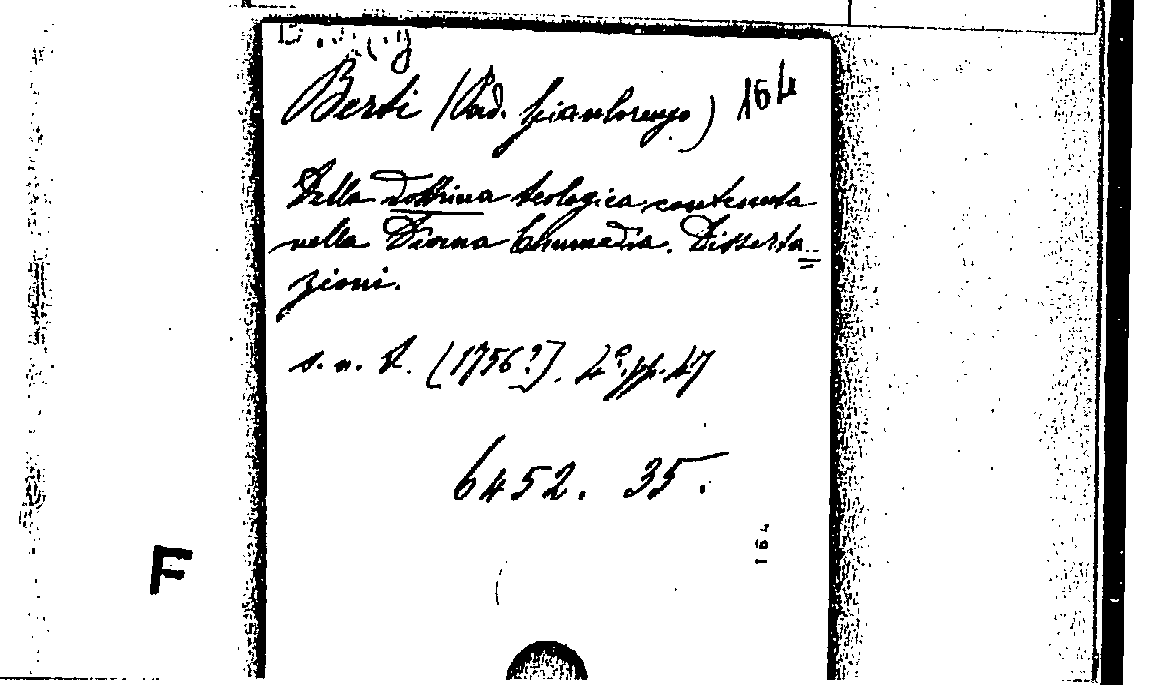 Berti (Pad. Gianlorenzo) 164
Della dottrina teologica contenuta
nella Divina Commedia. Disserta=
zioni.
s. n. t. [1756?]. 4º. pp. 47
6452. 35.
164
F